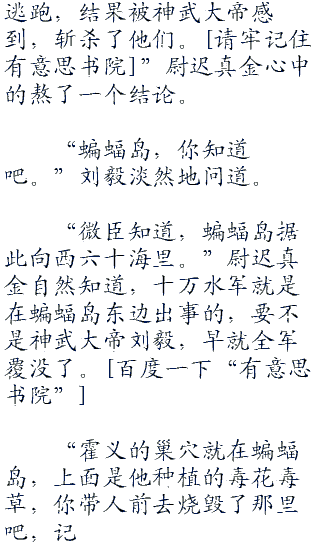 逃跑，结果被神武大帝感
到，斩杀了他们。[请牢记住
有意思书院]”尉迟真金心中
的熬了一个结论。
“蝙蝠岛，你知道
吧。”刘毅淡然地问道。
“微臣知道，蝙蝠岛据
此向西六十海里。”尉迟真
金自然知道，十万水军就是
在蝙蝠岛东边出事的，要不
是神武大帝刘毅，早就全军
覆没了。[百度一下“有意思
书院”]
“霍义的巢穴就在蝙蝠
岛，上面是他种植的毒花毒
草，你带人前去烧毁了那里
吧，记